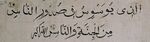 الذى يوسوس فى صدور الناس
من الجنة والناس